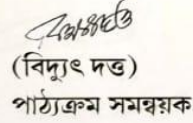 (বিদ্যুৎ দত্ত)
পাঠ্যক্রম সমন্বয়ক